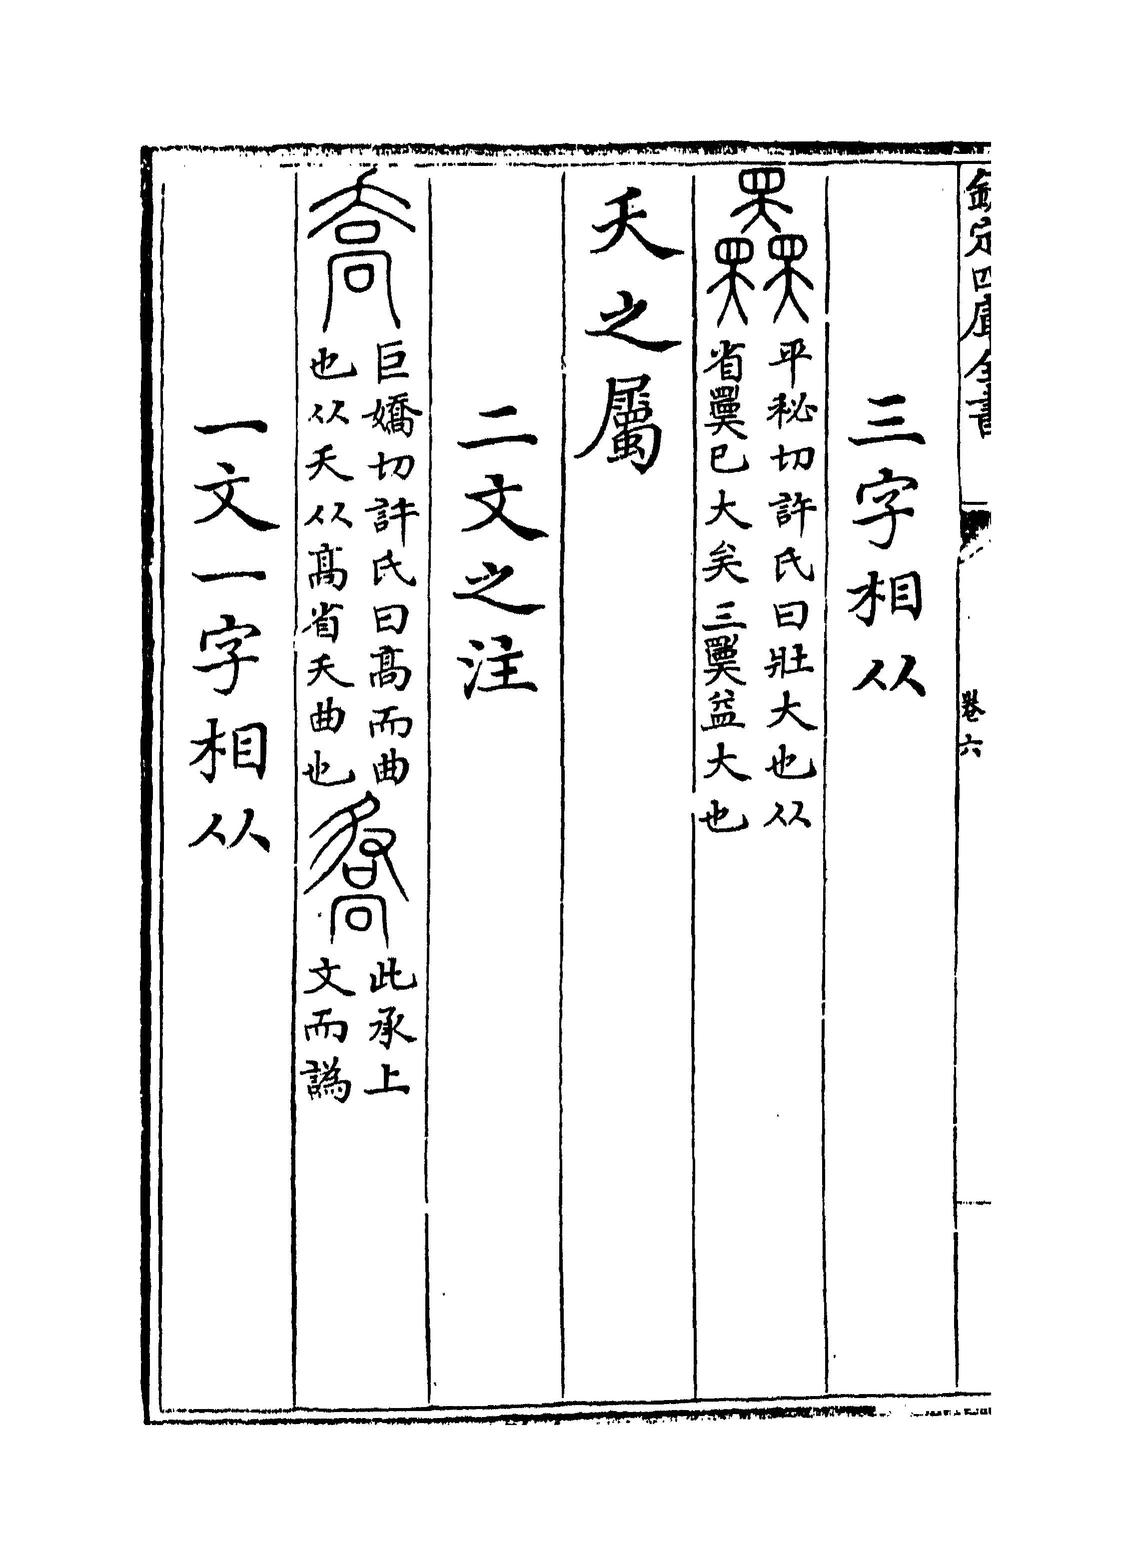 欽定四庫全書
卷六
三字相从
𡚤平秘切許氏曰壯大也从
省奰已大矣三奰益大也
夭之屬
二文之注
喬巨嬌切許氏曰髙而曲
也从夭从髙省夭曲也
此承上
文而譌
一文一字相从